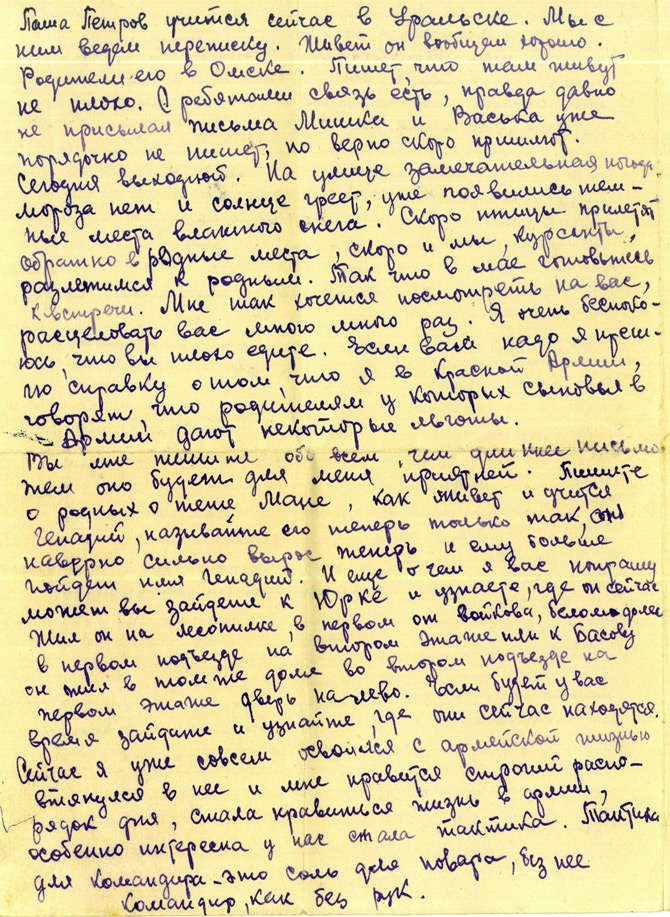 Паша Петров учится сейчас в Уральске. Мы с
ним ведем переписку. Живет он вообщем хорошо.
Родители его в Омске. Пишет, что там живут
не плохо. С ребятами связь есть, правда давно
не присылал письма Мишка и Васька уже
порядочно не пишет, но верно скоро пришлют.
Сегодня выходной. На улице замечательная погода.
мороза нет и солнце греет, уже появились тем-
ные места влажного снега. Скоро птицы прилетят
обратно в родные места, скоро и мы, курсанты,
разлетимся к родным. Так что в мае готовьтесь
к встречи. Мне так хочется посмотреть на вас,
расцеловать вас много много раз. Я очень беспоко-
юсь, что вы плохо едите. Если вам надо я приш-
лю справку о том, что я в Красной Армии,
говорят, что родителям у которых сыновья в
Армии дают некоторые льготы.
Вы мне пишите обо всем, чем длиннее письмо
тем оно будет для меня приятней. Пишите
о родных о тете Мане, как живет и учится
Генадий, называйте его теперь только так, он
наверно сильно вырос теперь и ему больше
пойдет имя Генадий. И еще о чем я вас попрошу
может вы зайдете к Юрке и узнаете, где он сейчас
Жил он на лесопилке, в первом от Войкова, белом доме
в первом подъезде на втором этаже или к Басову
он жил в том же доме во втором подъезде на
первом этаже дверь налево. Если будет у вас
время зайдите и узнайте, где они сейчас находятся.
Сейчас я уже совсем освоился с армейской жизнью
втянулся в нее и мне нравится строгий распо-
рядок дня, стала нравиться жизнь в армии,
особенно интересна у нас стала тактика. Тактика
для командира - это соль для повара, без нее
командир, как без рук.